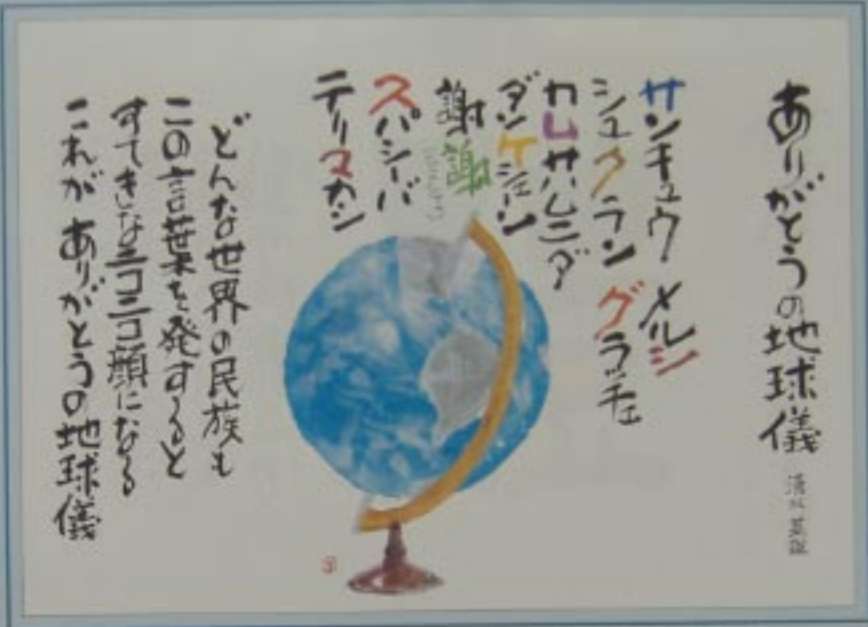 ありがとうの地球儀
清水英雄
サンキュウ メルシ
シュクラン グラッチェ
カムサハムニダ
ダンケシェーン
謝謝
スパシーバ
テリマカシ
どんな世界の民族も
この言葉を発すると
すてきなニコニコ顔になる
これが ありがとうの地球儀